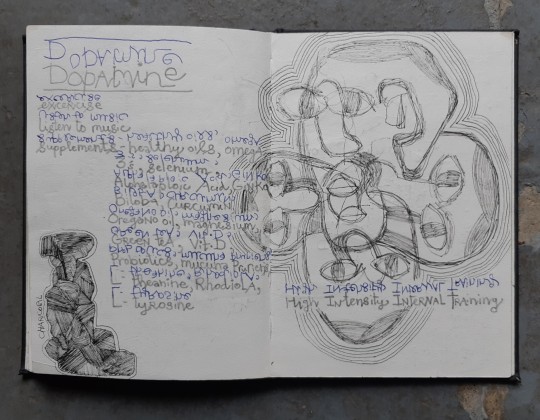 Dopamine
excercise
listen to music
Supplements - healthy oils, omega
selenium
Lipoic Acid, Ginkgo
Biloba, Curcumin,
Oregano oil, magnesium,
Green tea, Vit. D,
Probiotics, mucuna
L-Theanine, Rhodiola,
L-Tyrosine
CHARCOAL
High Intensity INTERNAL Training